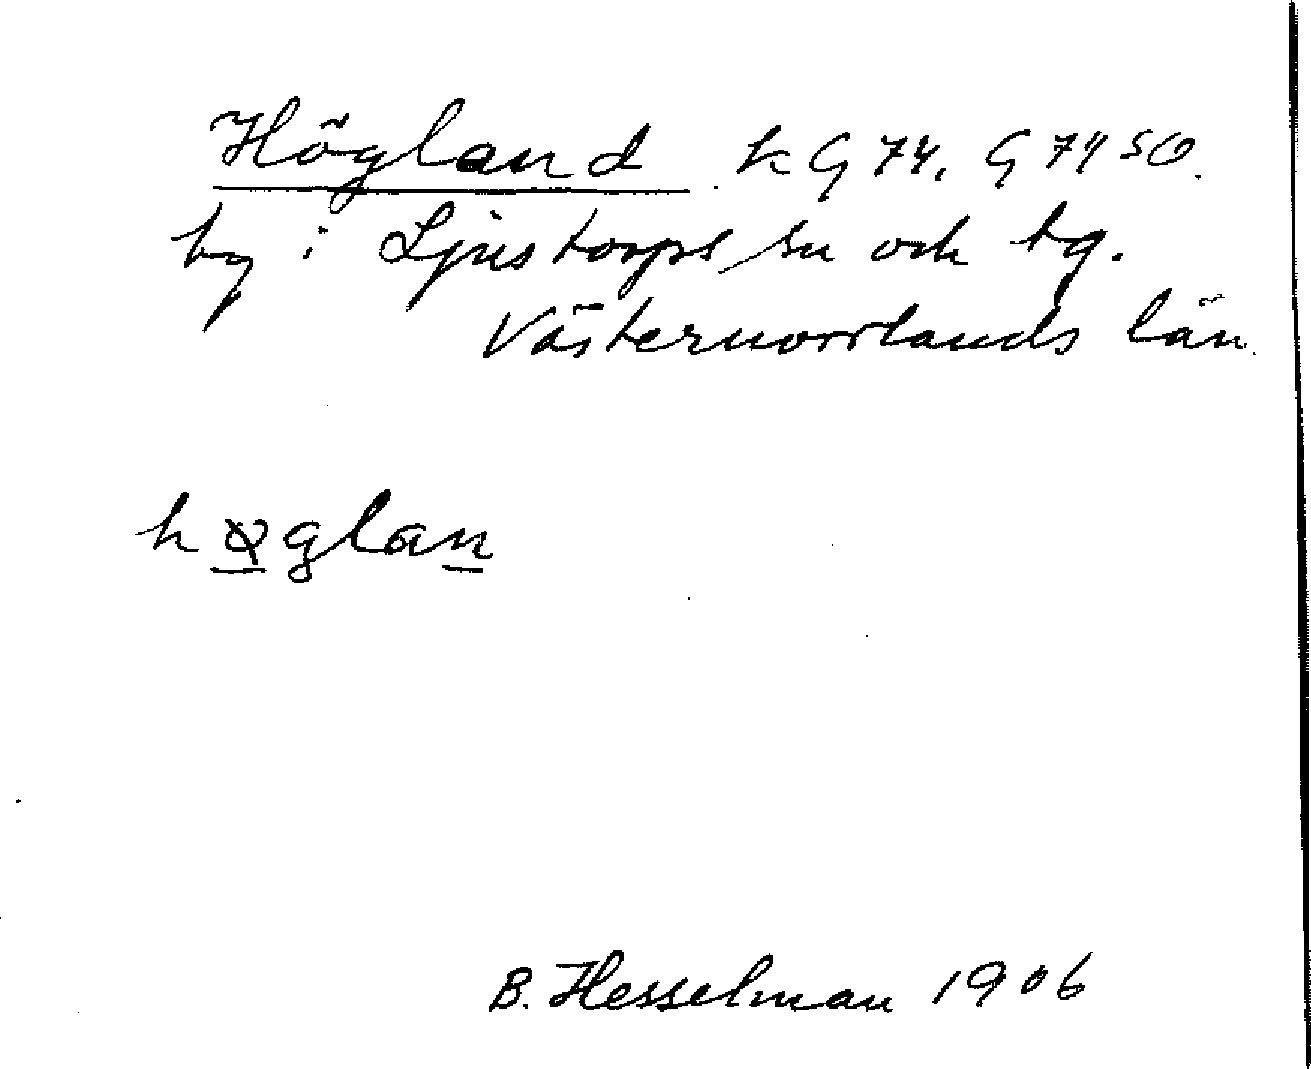 Högland k G 74. G 74 SO.
by i Ljustorps sn och tg.
Västernorrlands län.
høglan
B. Hesselman 1906